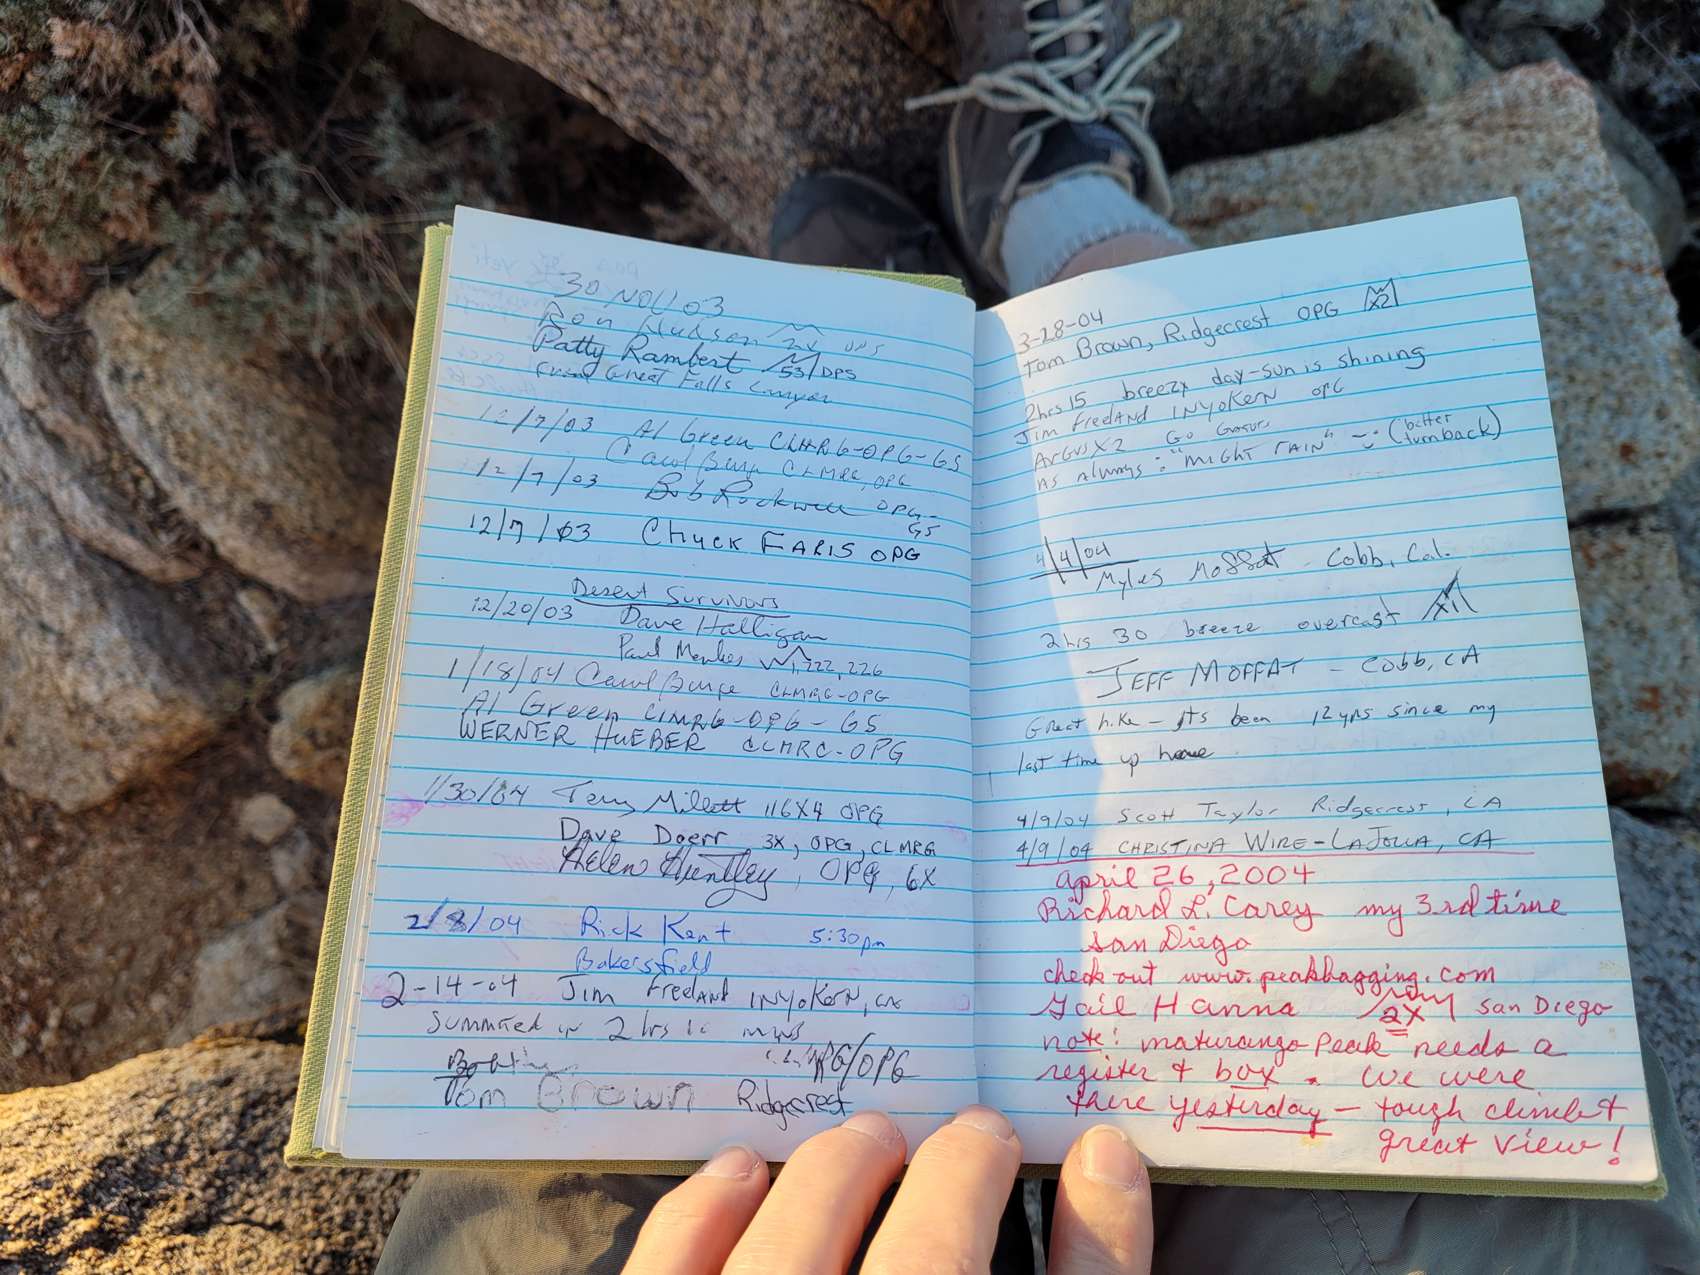 30 NOV 03
Ron Hudson 2X OPS
Patty Rambert 53/DPS
From Great Falls Canyon
12/7/03 Al Green CLMRG-OPG-GS
Carol Burge CLMRG, OPG
12/7/03 Bob Rockwell OPG-
GS
12/7/03 Chuck FARIS OPG
Desert Survivors
12/20/03 Dave Halligan
Paul Menkes 222, 226
1/18/04 Carol Burge CLMRG-OPG
Al Green CLMRG-OPG-GS
WERNER HUEBER CLMRG-OPG
1/30/04 Terry Millett 116X4 OPG
Dave Doerr 3X, OPG, CLMRG
Helen Huntley, OPG, 6X
2/8/04 Rick Kent 5:30pm
Bakersfield
2-14-04 Jim Freeland INYOKERN, CA
Summited in 2 hrs 10 mins
/OPG
Tom Brown Ridgecrest
3-28-04
Tom Brown, Ridgecrest OPG X2
2hrs 15 breezy day-sun is shining
Jim Freeland INYOKERN OPG
ARGUS X2 Go
As Always: "MIGHT RAIN" (better
turnback)
4/4/04
Myles Moffat Cobb, Cal.
2hrs 30 breeze overcast X1
JEFF MOFFAT - Cobb, CA
Great hike - its been 12 yrs since my
last time up here
4/9/04 Scott Taylor Ridgecrest, CA
4/9/04 CHRISTINA WIRE-LAJOLLA, CA
April 26, 2004
Richard L. Carey my 3rd time
San Diego
check out www.peakbagging.com
Gail Hanna 2X San Diego
note: maturango Peak needs a
register & box. We were
there yesterday - tough climb &
great view!